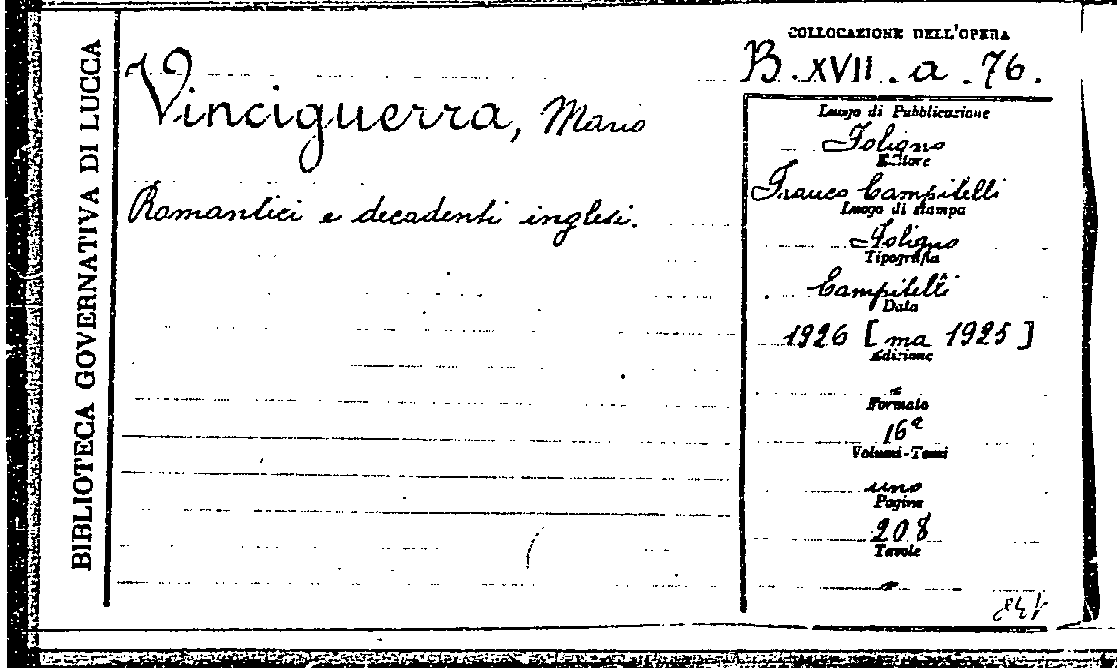 BIBLIOTECA GOVERNATIVA DI LUCCA
Vinciguerra, Mario
Romantici e decadenti inglesi.
COLLOCAZIONE DELL'OPERA
B. XVII. a. 76.
Luogo di Pubblicazione
Foligno
Editore
Franco Campitelli
Luogo di stampa
Foligno
Tipografia
Campitelli
Data
1926 [ma 1925]
Edizione
Formato
16°
Volumi-Tomi
uno
Pagine
208
Tavole